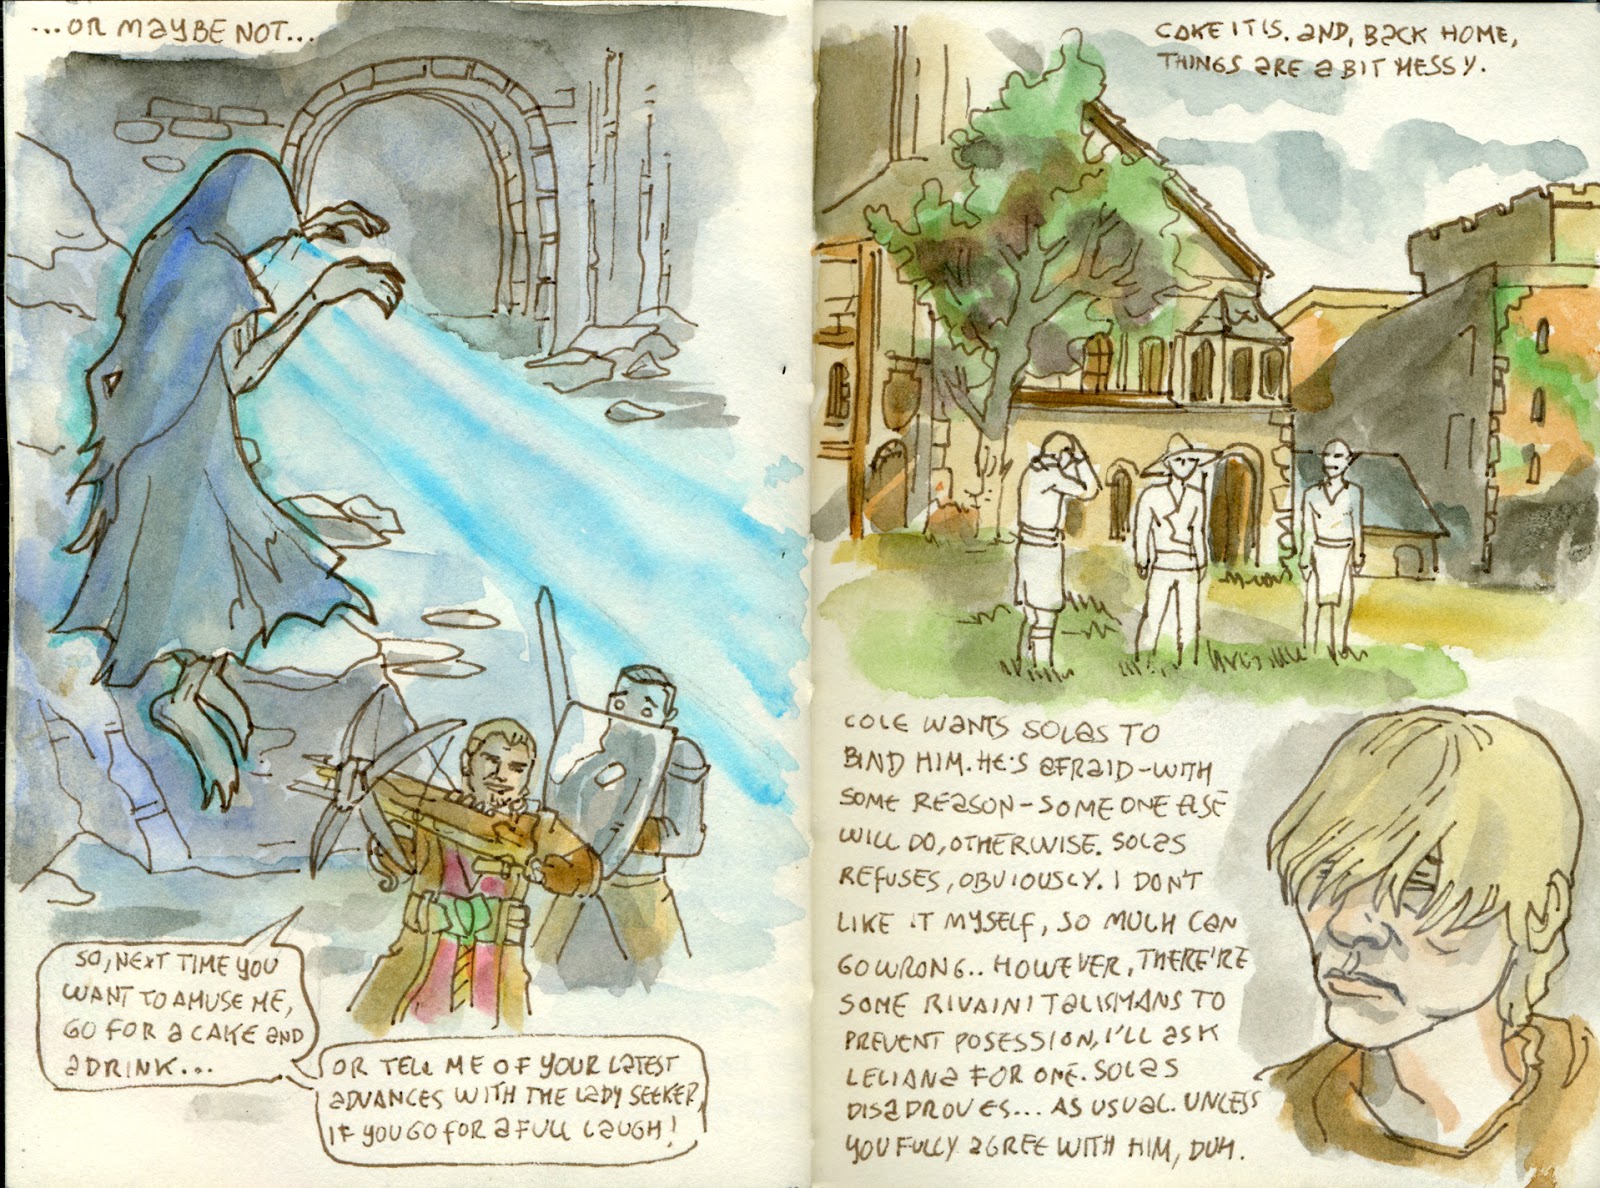 ...OR MAYBE NOT...
SO, NEXT TIME YOU
WANT TO AMUSE ME,
GO FOR A CAKE AND
A DRINK...
OR TELL ME OF YOUR LATEST
ADVANCES WITH THE LADY SEEKER,
IF YOU GO FOR A FULL LAUGH!
CAKE IT IS. AND, BACK HOME,
THINGS ARE A BIT MESSY.
COLE WANTS SOLAS TO
BIND HIM. HE'S AFRAID-WITH
SOME REASON-SOMEONE ELSE
WILL DO, OTHERWISE. SOLAS
REFUSES, OBVIOUSLY. I DON'T
LIKE IT MYSELF, SO MUCH CAN
GO WRONG.. HOWEVER, THERE'RE
SOME RIVAINI TALISMANS TO
PREVENT POSESSION, I'LL ASK
LELIANA FOR ONE. SOLAS
DISADROVES... AS USUAL. UNLESS
YOU FULLY AGREE WITH HIM, DUH.